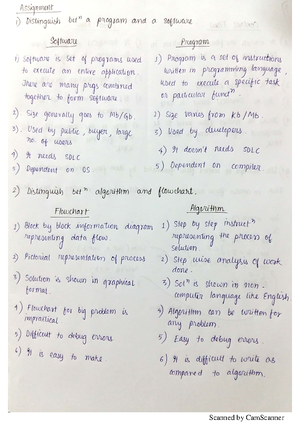 Assignment
1) Distinguish betn a program and a software
Software
1) Software is set of programs used
to execute an entire application.
There are many prgs combined
together to form software.
2) Size generally goes to Mb/Gb
3) Used by public, buyer, large
no. of users
4) It needs SDLC
5) Dependent on OS
Program
1) Program is a set of instructions
written in programming language,
used to execute a specific task
or particular functn
2) Size varies from Kb/Mb.
3) Used by developers
4) It doesn't needs SDLC
5) Dependent on compiler
2) Distinguish betn algorithm and flowchart.
Flowchart
1) Block by block information diagram
representing data flow.
2) Pictorial representation of process
3) Solution is shown in graphical
format.
4) Flowchart for big problem is
impractical
5) Difficult to debug errors
6) It is easy to make
Algorithm
1) Step by step instructn
representing the process of
solution
2) Step wise analysis of work
done.
3) Soln is shown in non
computer language like English
4) Algorithm can be written for
any problem
5) Easy to debug errors.
6) It is difficult to write as
compared to algorithm.
Scanned by CamScanner